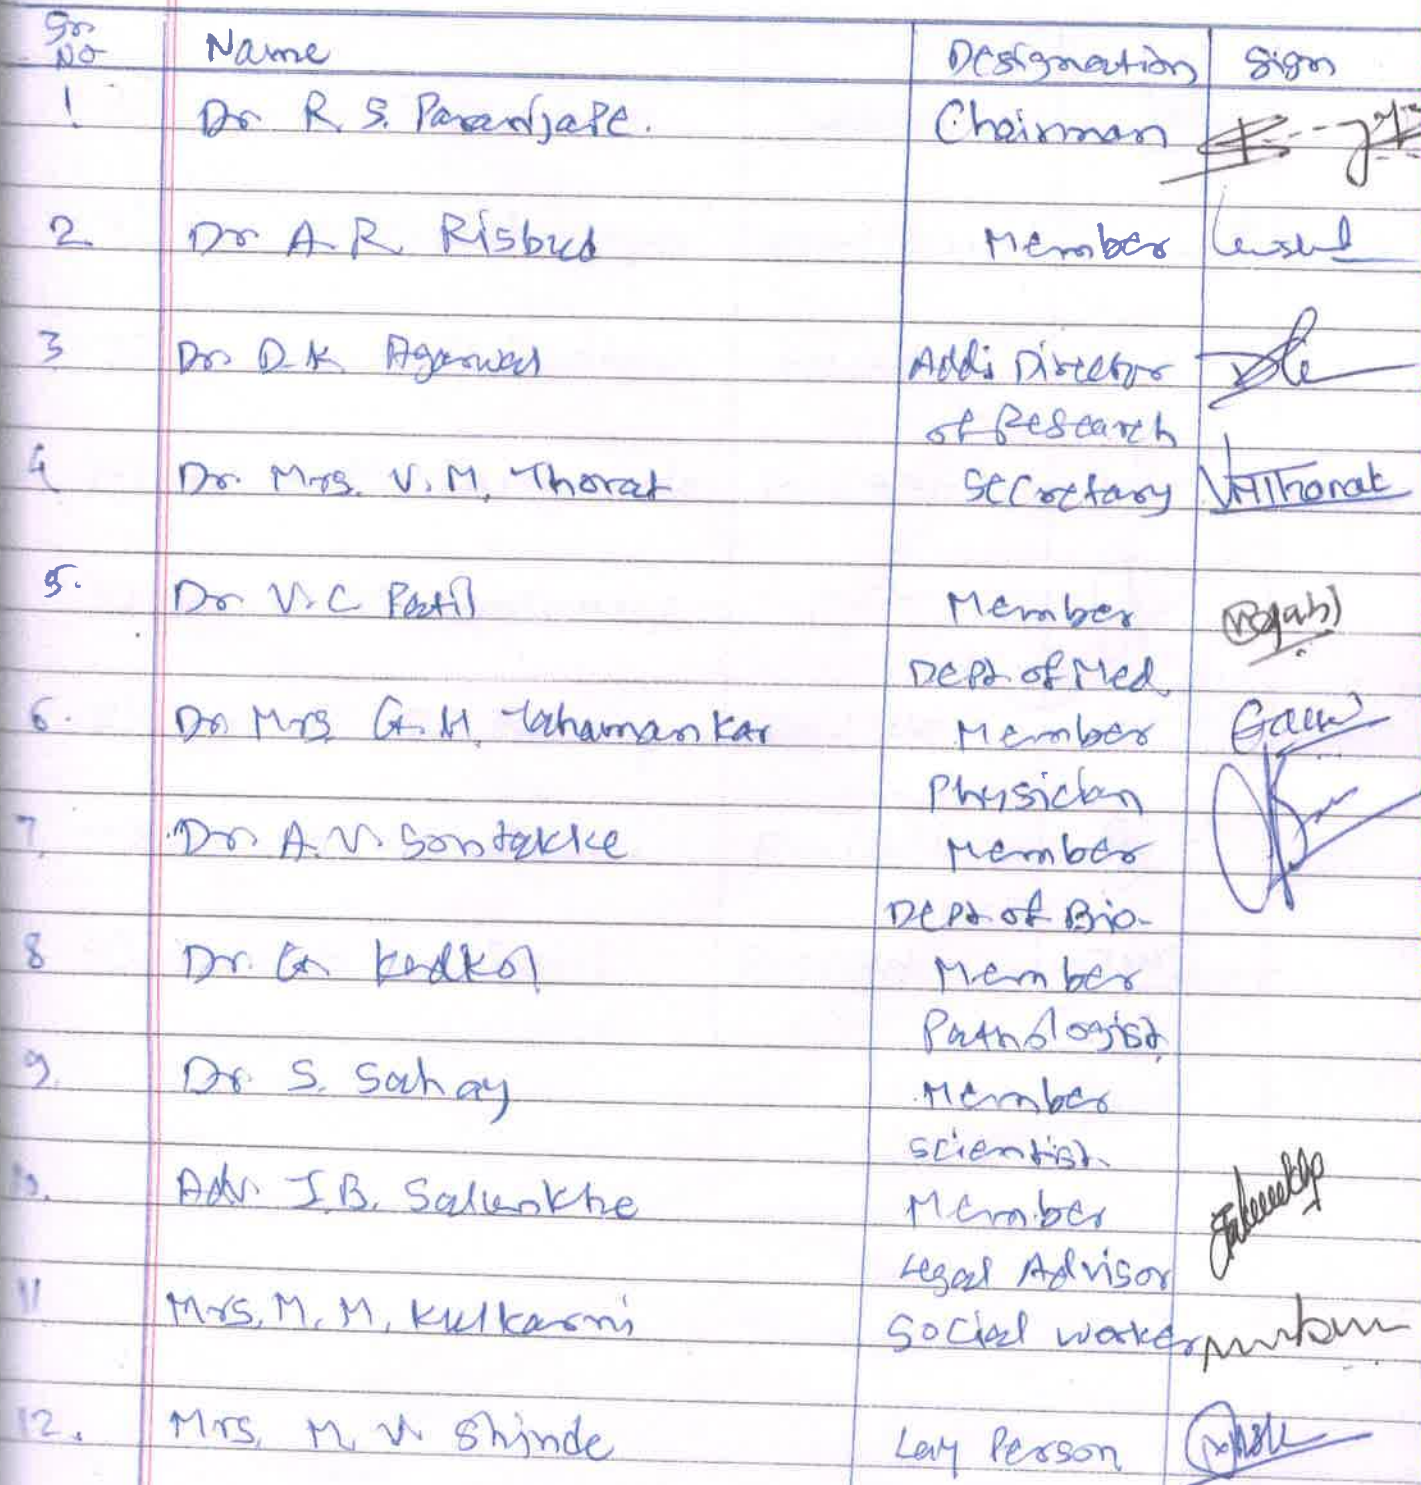 Sr. No Name Designation Sign
1 Dr R. S. Paranjape. Chairman
2 Dr A. R. Risbud Member
3 Dr. D. K Agarwal Addi Director
of Research
4 Dr. Mrs. V. M. Thorat Secretary VMThorat
5. Dr V. C Patil Member
Dept. of Med
6. Dr. Mrs. G. H. Tahamankar Member
Physician
7. Dr. A. V. Sontakke Member
Dept of Bio-
8 Dr. G. Kadkol Member
Pathologist
9. Dr. S. Sahay Member
Scientist.
10. Adv. J. B. Salunkhe Member
Legal Advisor
11 Mrs. M. M. Kulkarni Social worker
12. Mrs. M. V. Shinde Lay Person